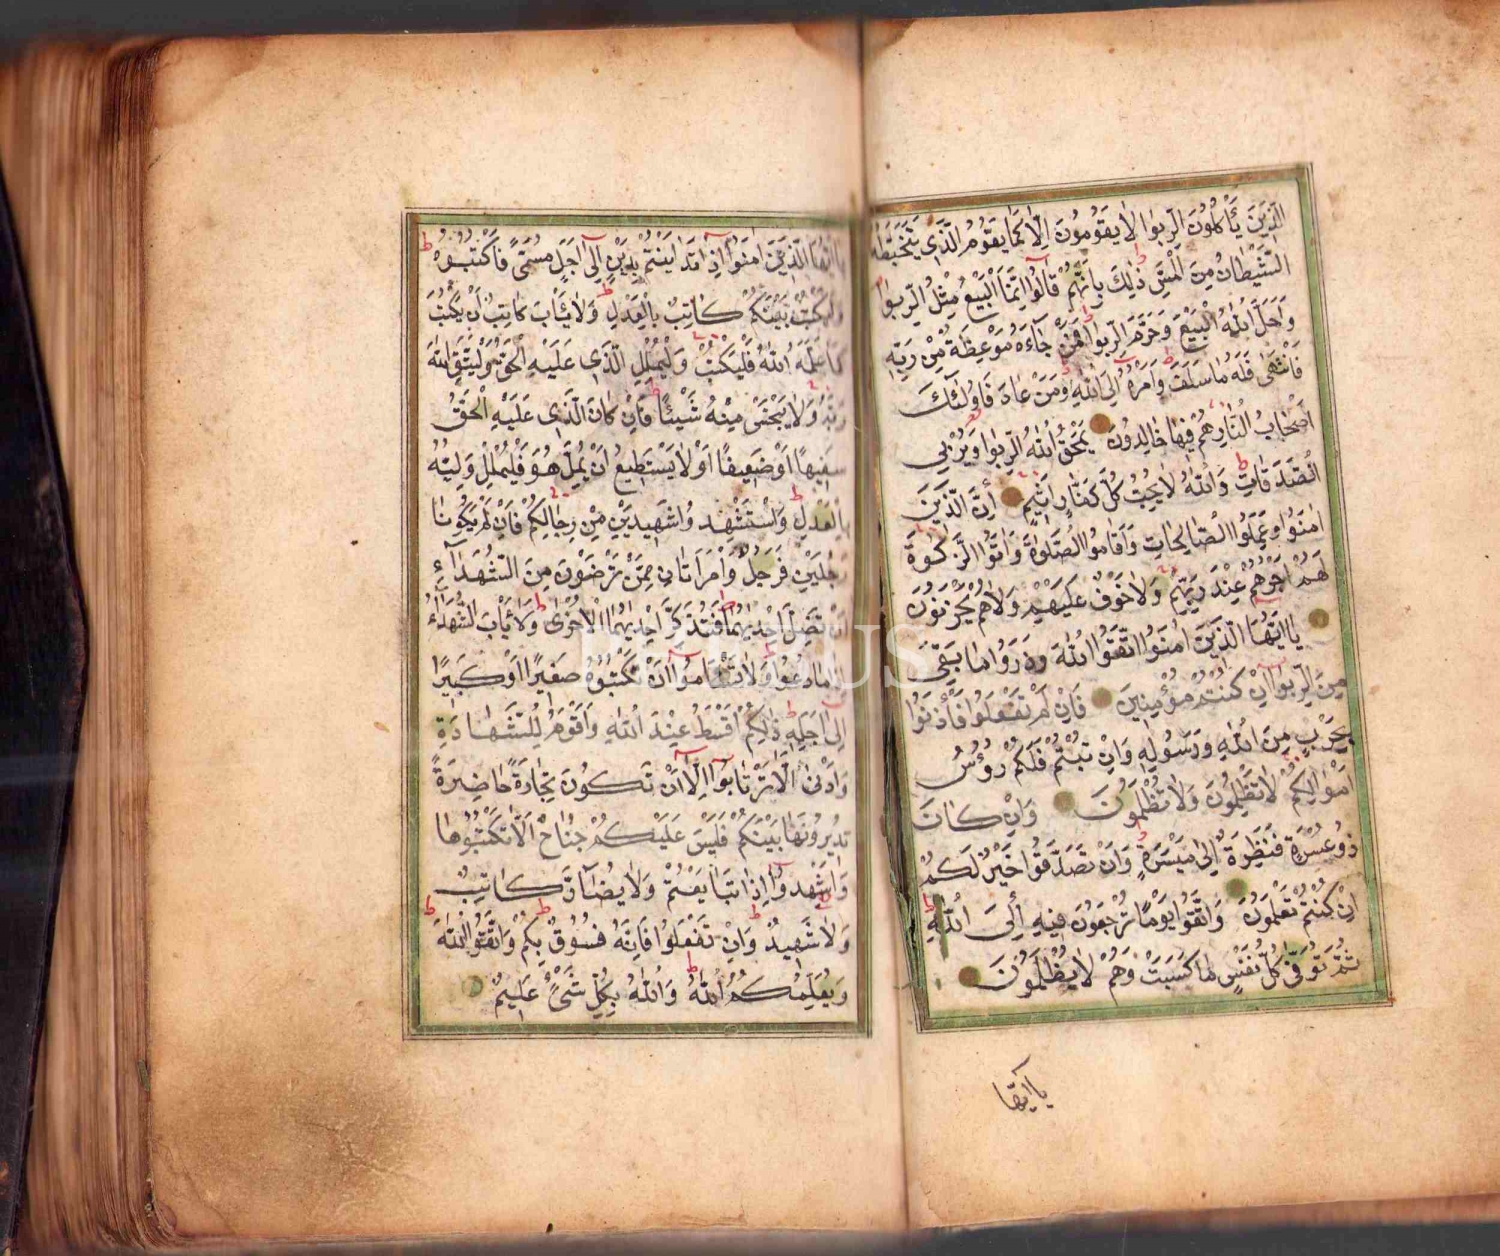 الَّذِينَ يَأْكُلُونَ الرِّبٰوا لَا يَقُومُونَ اِلَّا كَمَا يَقُومُ الَّذِي يَتَخَبَّطُهُ
الشَّيْطَانُ مِنَ الْمَسِّ ذٰلِكَ بِاَنَّهُمْ قَالُوا اِنَّمَا الْبَيْعُ مِثْلُ الرِّبٰوا
وَاَحَلَّ اللّٰهُ الْبَيْعَ وَحَرَّمَ الرِّبٰوا فَمَنْ جَاءَهُ مَوْعِظَةٌ مِنْ رَبِّهِ
فَانْتَهٰى فَلَهُ مَا سَلَفَ وَاَمْرُهُ اِلَى اللّٰهِ وَمَنْ عَادَ فَاُولٰئِكَ
اَصْحَابُ النَّارِ هُمْ فِيهَا خَالِدُونَ يَمْحَقُ اللّٰهُ الرِّبٰوا وَيُرْبِي
الصَّدَقَاتِ وَاللّٰهُ لَا يُحِبُّ كُلَّ كَفَّارٍ اَثِيمٍ اِنَّ الَّذِينَ
اٰمَنُوا وَعَمِلُوا الصَّالِحَاتِ وَاَقَامُوا الصَّلٰوةَ وَاٰتَوُا الزَّكٰوةَ
لَهُمْ اَجْرُهُمْ عِنْدَ رَبِّهِمْ وَلَا خَوْفٌ عَلَيْهِمْ وَلَا هُمْ يَحْزَنُونَ
يَا اَيُّهَا الَّذِينَ اٰمَنُوا اتَّقُوا اللّٰهَ وَذَرُوا مَا بَقِيَ
مِنَ الرِّبٰوا اِنْ كُنْتُمْ مُؤْمِنِينَ فَاِنْ لَمْ تَفْعَلُوا فَأْذَنُوا
بِحَرْبٍ مِنَ اللّٰهِ وَرَسُولِهِ وَاِنْ تُبْتُمْ فَلَكُمْ رُؤُسُ
اَمْوَالِكُمْ لَا تَظْلِمُونَ وَلَا تُظْلَمُونَ وَاِنْ كَانَ
ذُو عُسْرَةٍ فَنَظِرَةٌ اِلٰى مَيْسَرَةٍ وَاَنْ تَصَدَّقُوا خَيْرٌ لَكُمْ
اِنْ كُنْتُمْ تَعْلَمُونَ وَاتَّقُوا يَوْمًا تُرْجَعُونَ فِيهِ اِلَى اللّٰهِ
ثُمَّ تُوَفّٰى كُلُّ نَفْسٍ مَا كَسَبَتْ وَهُمْ لَا يُظْلَمُونَ
يا ايها
يَا اَيُّهَا الَّذِينَ اٰمَنُوا اِذَا تَدَايَنْتُمْ بِدَيْنٍ اِلٰى اَجَلٍ مُسَمًّى فَاكْتُبُوهُ
وَلْيَكْتُبْ بَيْنَكُمْ كَاتِبٌ بِالْعَدْلِ وَلَا يَأْبَ كَاتِبٌ اَنْ يَكْتُبَ
كَمَا عَلَّمَهُ اللّٰهُ فَلْيَكْتُبْ وَلْيُمْلِلِ الَّذِي عَلَيْهِ الْحَقُّ وَلْيَتَّقِ اللّٰهَ
رَبَّهُ وَلَا يَبْخَسْ مِنْهُ شَيْئًا فَاِنْ كَانَ الَّذِي عَلَيْهِ الْحَقُّ
سَفِيهًا اَوْ ضَعِيفًا اَوْ لَا يَسْتَطِيعُ اَنْ يُمِلَّ هُوَ فَلْيُمْلِلْ وَلِيُّهُ
بِالْعَدْلِ وَاسْتَشْهِدُوا شَهِيدَيْنِ مِنْ رِجَالِكُمْ فَاِنْ لَمْ يَكُونَا
رَجُلَيْنِ فَرَجُلٌ وَامْرَاَتَانِ مِمَّنْ تَرْضَوْنَ مِنَ الشُّهَدَاءِ
اَنْ تَضِلَّ اِحْدٰيهُمَا فَتُذَكِّرَ اِحْدٰيهُمَا الْاُخْرٰى وَلَا يَأْبَ الشُّهَدَاءُ
اِذَا مَا دُعُوا وَلَا تَسْئَمُوا اَنْ تَكْتُبُوهُ صَغِيرًا اَوْ كَبِيرًا
اِلٰى اَجَلِهِ ذٰلِكُمْ اَقْسَطُ عِنْدَ اللّٰهِ وَاَقْوَمُ لِلشَّهَادَةِ
وَاَدْنٰى اَلَّا تَرْتَابُوا اِلَّا اَنْ تَكُونَ تِجَارَةً حَاضِرَةً
تُدِيرُونَهَا بَيْنَكُمْ فَلَيْسَ عَلَيْكُمْ جُنَاحٌ اَلَّا تَكْتُبُوهَا
وَاَشْهِدُوا اِذَا تَبَايَعْتُمْ وَلَا يُضَارَّ كَاتِبٌ
وَلَا شَهِيدٌ وَاِنْ تَفْعَلُوا فَاِنَّهُ فُسُوقٌ بِكُمْ وَاتَّقُوا اللّٰهَ
وَيُعَلِّمُكُمُ اللّٰهُ وَاللّٰهُ بِكُلِّ شَيْءٍ عَلِيمٌ